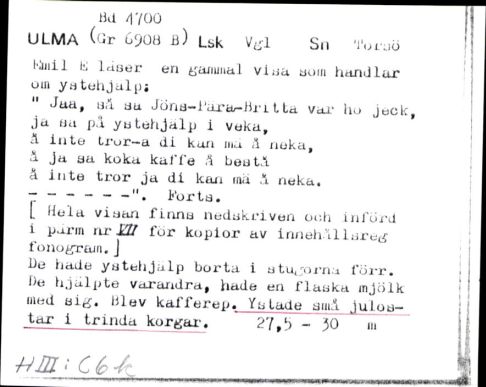 Bd 4700
ULMA (Gr 6908 B) Lsk Vgl Sn Torsö
Emil E läser en gammal visa som handlar
om ystehjälp:
" Jaa, så sa Jöns-Pära-Britta var ho jeck,
ja sa på ystehjälp i veka,
å inte tror-a di kan mä å neka,
å ja sa koka kaffe å bestå
å inte tror ja di kan mä å neka.
- - - - - -". Forts.
[ Hela visan finns nedskriven och införd
i pärm nr VII för kopior av innehållsreg
fonogram. ]
De hade ystehjälp borta i stugorna förr.
De hjälpte varandra, hade en flaska mjölk
med sig. Blev kafferep. Ystade små julos-
tar i trinda korgar. 27,5 - 30 m
H III : C 6 k